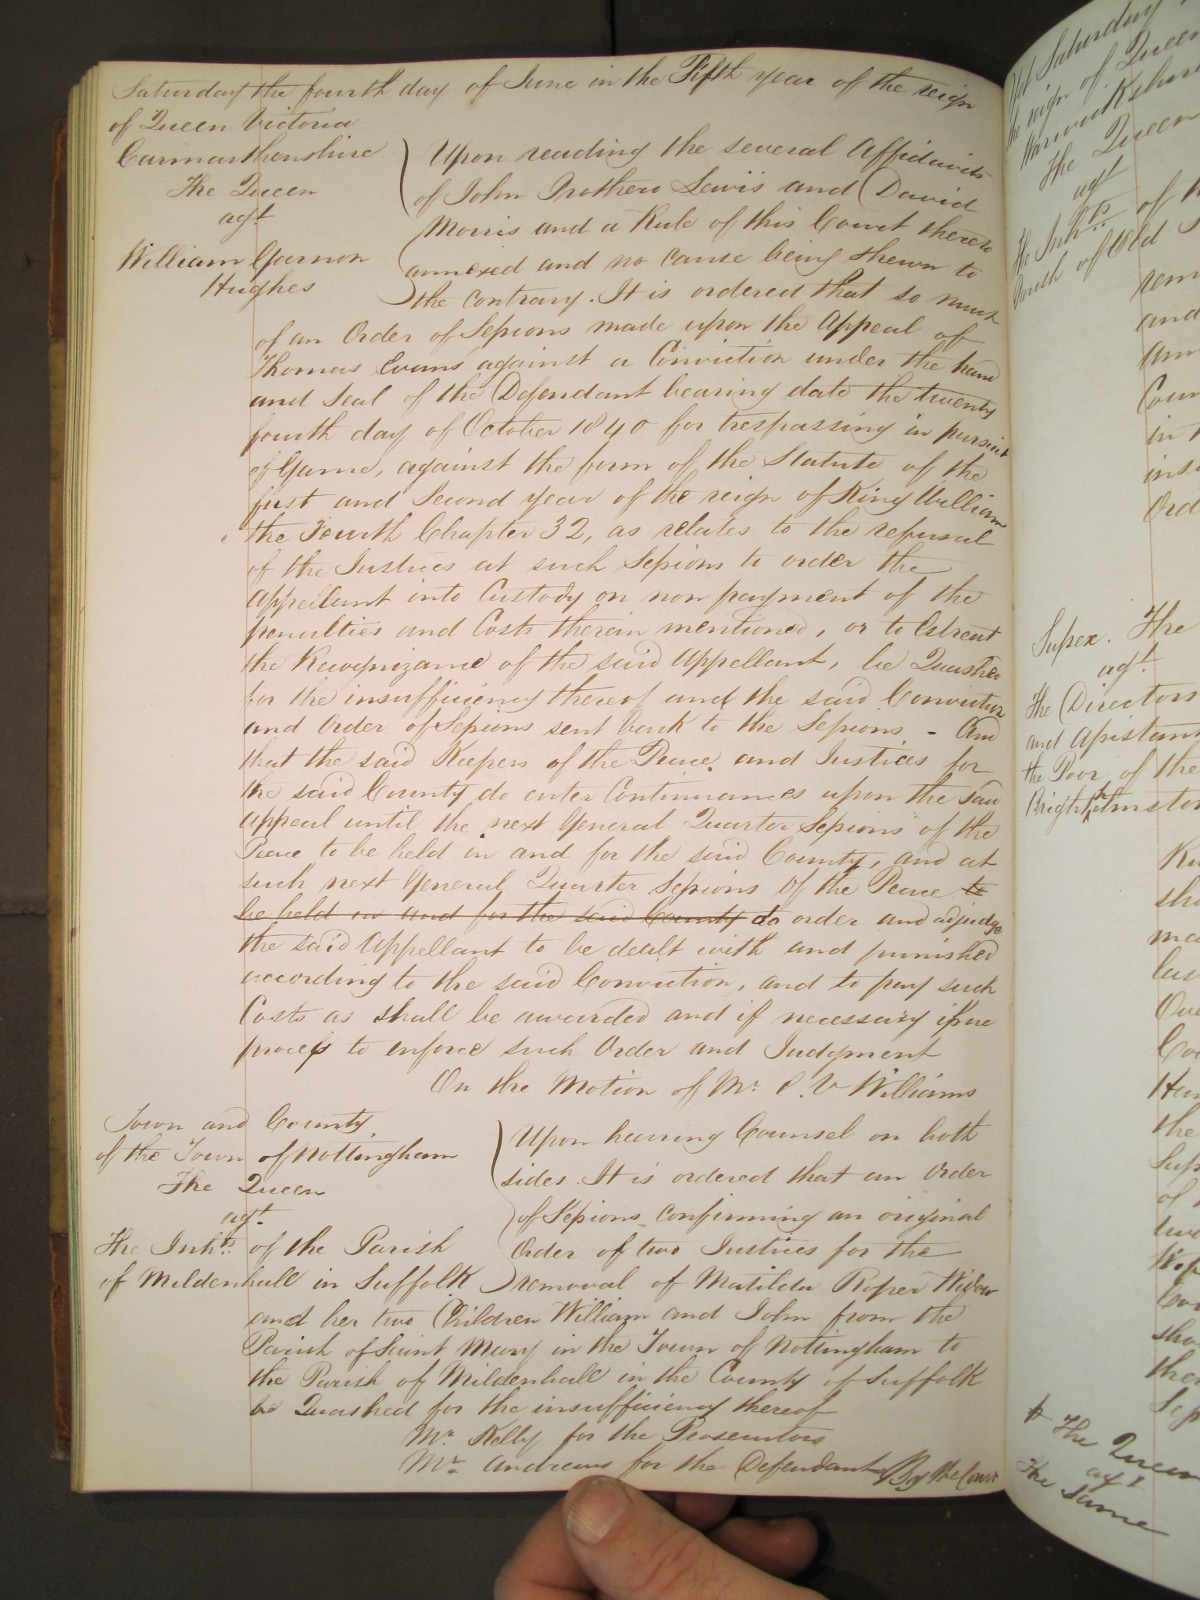 Saturday the fourth day of June in the Fifth year of the reign
of Queen Victoria
Carmarthenshire
The Queen
agt
William Garnon
Hughes
Upon reading the several Affidavits
of John Prothero Lewis and David
Morris and a Rule of this Court thereto
annexed and no cause being shewn to
the contrary. It is ordered that so much
of an Order of Sessions made upon the Appeal of
Thomas Evans against a Conviction under the hand
and Seal of the Defendant bearing date the twenty
fourth day of October 1840 for trespassing in pursuit
of Game, against the form of the Statute of the
first and Second year of the reign of King William
the Fourth Chapter 32, as relates to the refusal
of the Justices at such Sessions to order the
Appellant into Custody on non payment of the
penalties and Costs therein mentioned, or to Estreat
the Recognizance of the said Appellant, be Quashed
for the insufficiency thereof and the said Conviction
and Order of Sessions sent back to the Sessions - And
that the said Keepers of the Peace, and Justices for
the said County do enter Continuances upon the said
appeal until the next General Quarter Sessions of the
Peace to be held in and for the said County, and at
such next General Quarter Sessions of the Peace to
be held in and for the said County do order and adjudge
the said Appellant to be dealt with and punished
according to the said Conviction, and to pay such
Costs as shall be awarded and if necessary issue
process to enforce such Order and Judgment
On the Motion of Mr. E. V Williams
Town and County
of the Town of Nottingham
The Queen
agt.
The Inhts. of the Parish
of Mildenhall in Suffolk
Upon hearing Counsel on both
sides. It is ordered that an Order
of Sessions confirming an original
Order of two Justices for the
removal of Matilda Roper Widow
and her two Children William and John from the
Parish of Saint Mary in the Town of Nottingham to
the Parish of Mildenhall in the County of Suffolk
be Quashed for the insufficiency thereof
Mr. Kelly for the Prosecutors
Mr. Andrews for the Defendants By the Court
Saturday
the reign of Queen
Warwickshire
The Queen
agt
The Inhts. of
of Old
rem
and
Coun
in
ins
Ord
Sussex. The
agt.
The Directors
and Assistan
the Poor of the
Brighthelmston
Ru
sho
ma
las
Cou
the
of
two
sho
ther
Sess
The Queen
agt
The Same